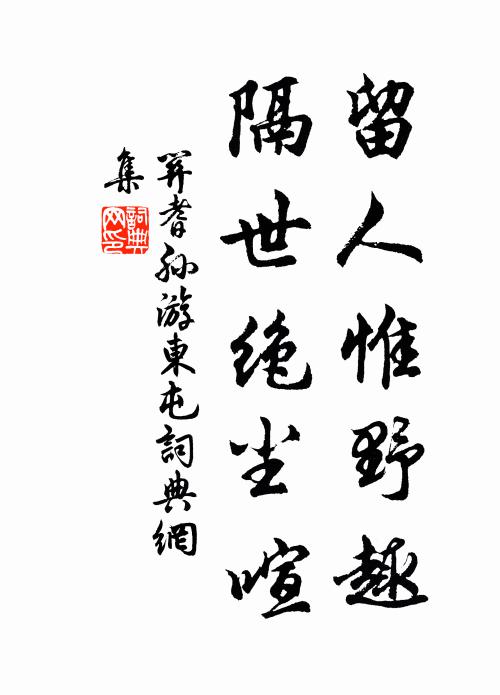 留人惟野趣
隔世绝尘喧
关耆孙游東屯詞典網
集
詞典
网印